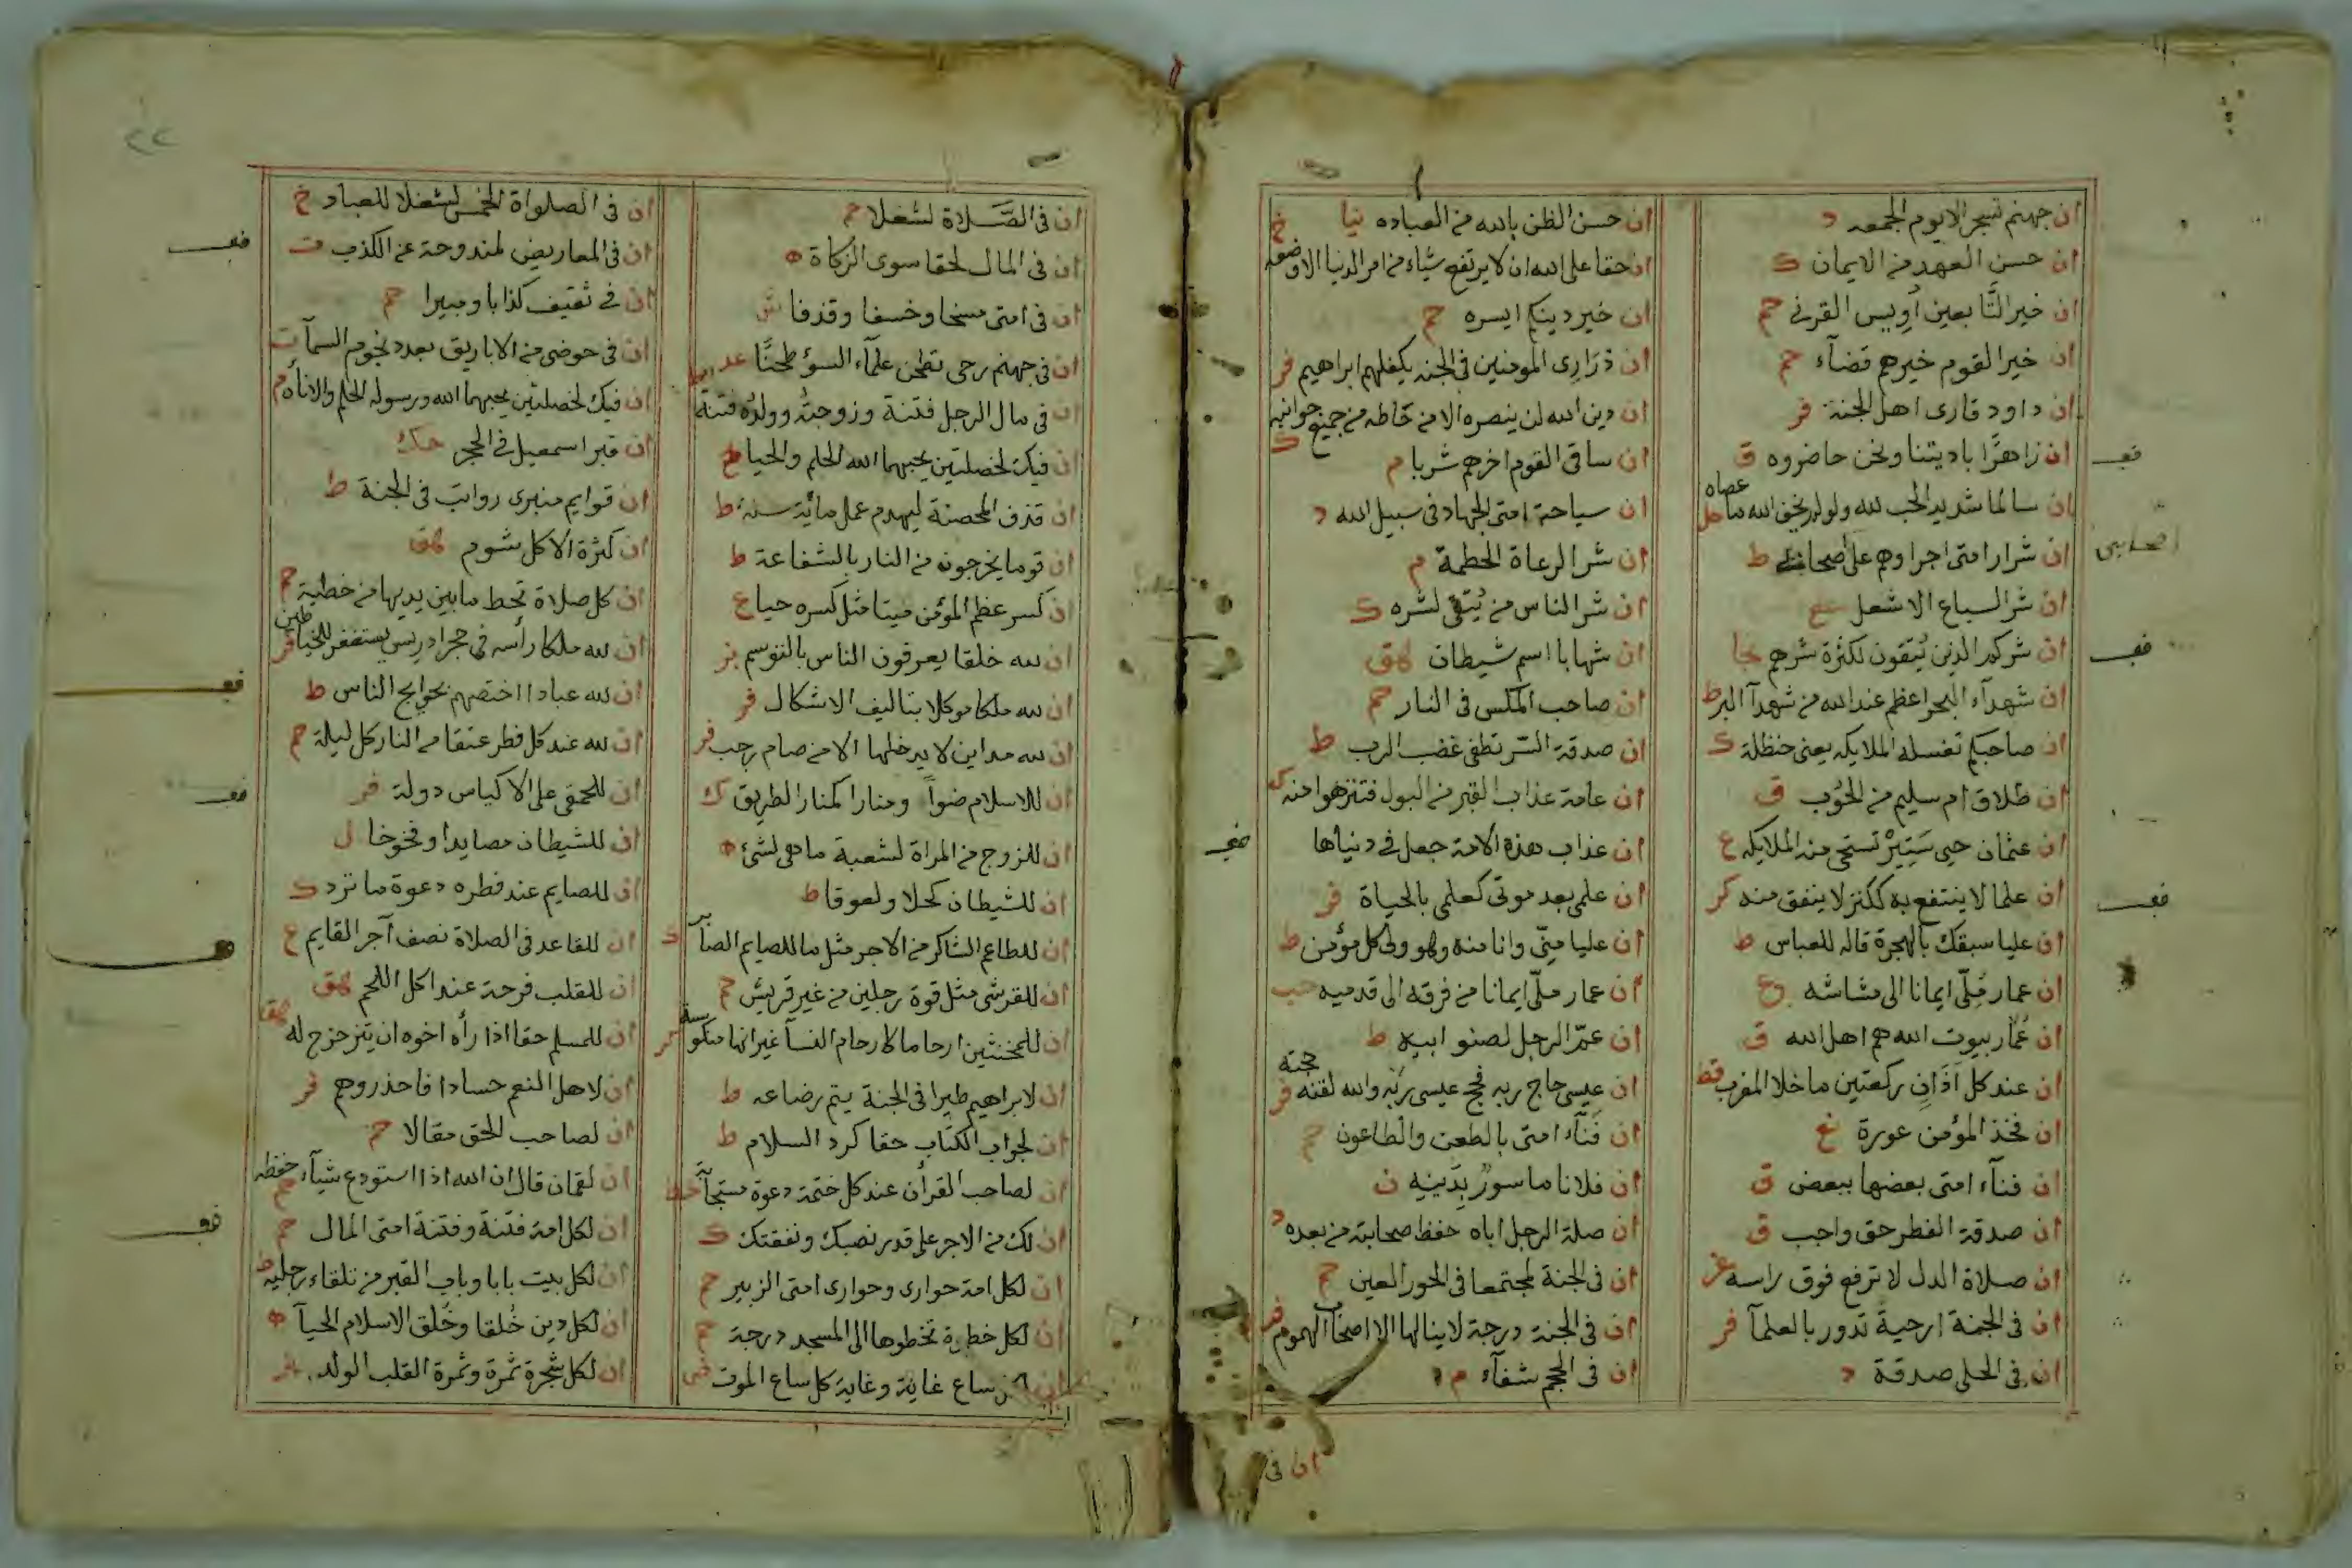 ان جهنم تسجر الا يوم الجمعه د
ان حسن العهد من الايمان ك
ان خير التابعين اويس القرني حم
ان خير القوم خيرهم قضآء حم
ان داود قارى اهل الجنة فر
ان زاهرًا باديتنا ونحن حاضروه ق
ان سالما شديد الحب لله ولو لم يخف الله ما عصاه حل
ان شرار امتى اجراوهم على صحابتي ط
اصحابى
ان شر السباع الاشعل
ان شركم الذين يُتقون لكثرة شرهم نجا
ان شهدآء البحر اعظم عند الله من شهدآ البر ط
ان صاحبكم تغسله الملايكه يعنى حنظلة ك
ان طلاق ام سليم من الحُوب ق
ان عثمان حيى سَتِيْر تستحى منه الملايكه ع
ان علما لا ينتفع به ككنز لا ينفق منه كر
ان عليا سبقك بالهجرة قاله للعباس ط
ان عمار مُلّى ايمانا الى مشاشه
ان عُمّار بيوت الله هم اهل الله ق
ان عند كل اَذَانٍ ركعتين ما خلا المغرب قط
ان فخذ المؤمن عورة غ
ان فنآء امتى بعضها ببعض ق
ان صدقة الفطر حق واجب ق
ان صلاة المدل لا ترفع فوق راسه
ان فى الجنة ارحية تدور بالعلمآ فر
ان فى الحلى صدقة د
ان حسن الظن بالله من العباده
ان حقا على الله ان لا يرتفع شياء من امر الدنيا الا وضعه خ
ان خير دينكم ايسره حم
ان ذرَارِى المومنين فى الجنه يكفلهم ابراهيم فر
ان دين الله لن ينصره الا من حَاطه من جميع جوانبه ك
ان ساقى القوم اخرهم شربا م
ان سياحة امتى الجهاد فى سبيل الله د
ان شر الرعاة الحطمة م
ان شر الناس من يُتقى لشره ك
ان شهابا اسم شيطان هق
ان صاحب المكس فى النار حم
ان صدقة السّر تطفى غضب الرب ط
ان عامة عذاب القبر من البول فتنزهوا منه ك
ان عذاب هذه الامة جعل فى دنياها
ان علمى بعد موتى كعلمى بالحياة فر
ان عليا منّى وانا منه وهو ولى كل مؤمن ط
ان عمار ملّى ايمانا من فرقه الى قدميه
ان عمّ الرجل لصنو ابيه ط
ان عيسى حاج ربه فحج عيسى ربّه والله لقنه حجته فر
ان فَنَآء امتى بالطعن والطاعون حم
ان فلانا ماسورٌ بِدَينِه ن
ان صلة الرجل اباه حفظ صحابته من بعده د
ان فى الجنة لمجتمعا فى الحور العين حم
ان فى الجنة درجة لا ينالها الا اصحاب الهموم فر
ان فى الحجم شفآء م
ان فى
ان فى الصَّلاة لشغلا حم
ان فى المال لحقا سوى الزكاة ه
ان فى امتى مسخا وخسفا وقذفا
ان فى جهنم رحى تطحن علمآء السؤ طحنًا عد
ان فى مال الرجل فتنة وزوجتُه وولدُه فتنة
ان فيك لخصلتين يحبهما الله الحلم والحيا
ان قذف المحصنة ليهدم عمل مائة سنة ط
ان قوما يخرجون من النار بالشفاعة ط
ان كسر عظم المؤمن ميتا مثل كسره حيا ع
ان لله خلقا يعرفون الناس بالتوسم بز
ان لله ملكا موكلا بتاليف الاشكال فر
ان لله مداين لا يدخلها الا من صام رجب فر
ان للاسلام ضوآ ومنارا كمنار الطريق ك
ان للزوج من المراة لشعبة ما هى لشئ ه
ان للشيطان كحلا ولعوقا ط
ان للطاعم الشاكر من الاجر مثل ما للصايم الصابر ك
ان للقرشى مثل قوة رجلين من غير قريش حم
ان للمخنثين ارحاما كارحام النسآ غير انها منكوسة
ان لابراهيم ظيرا فى الجنة يتم رضاعه ط
ان لجواب الكتاب حقا كرد السلام ط
ان لصاحب القرآن عند كل ختمة دعوة مستجابة
ان لك من الاجر على قدر نصبك ونفقتك ك
ان لكل امة حوارى وحوارى امتى الزبير حم
ان لكل خطوة تخطوها الى المسجد درجة حم
ساع غاية وغاية كل ساع الموت
٢٢
ان فى الصلواة الخمس لشغلا للعباد خ
ان فى المعاريض لمندوحة عن الكذب ت
ان فى ثقيف كذابا ومبيرا حم
ان فى حوضى من الاباريق بعدد نجوم السمآ ت
ان فيك لخصلتين يحبهما الله ورسوله الحلم والاناة م
ان قبر اسمعيل فى الحجر حاك
ان قوايم منبرى رواتب فى الجنة ط
ان كثرة الاكل شوم هق
ان كل صلاة تحط ما بين يديها من خطية حم
ان لله ملكا رأسه فى حجر ادريس يستغفر للخباطين فر
ان لله عبادا اختصهم بحوايج الناس ط
ان لله عند كل فطر عتقا من النار كل ليلة حم
ان للحمقى على الاكياس دولة فر
ان للشيطان مصايدا وفخوخا ل
ان للصايم عند فطره دعوة ما ترد ك
ان للقاعد فى الصلاة نصف أجر القايم ع
ان للقلب فرحة عند اكل اللحم هق
ان للمسلم حقا اذا رأه اخوه ان يتزحزح له هق
ان لاهل النعم حسادا فاحذروهم فر
ان لصاحب الحق مقالا حم
ان لقمان قال ان الله اذا استودع شيآء حفظه حم
ان لكل امة فتنة وفتنة امتى المال حم
ان لكل بيت بابا وباب القبر من تلقاء رجليه ط
ان لكل دين خُلقا وخُلق الاسلام الحيآ ه
ان لكل شجرة ثمرة وثمرة القلب الولد